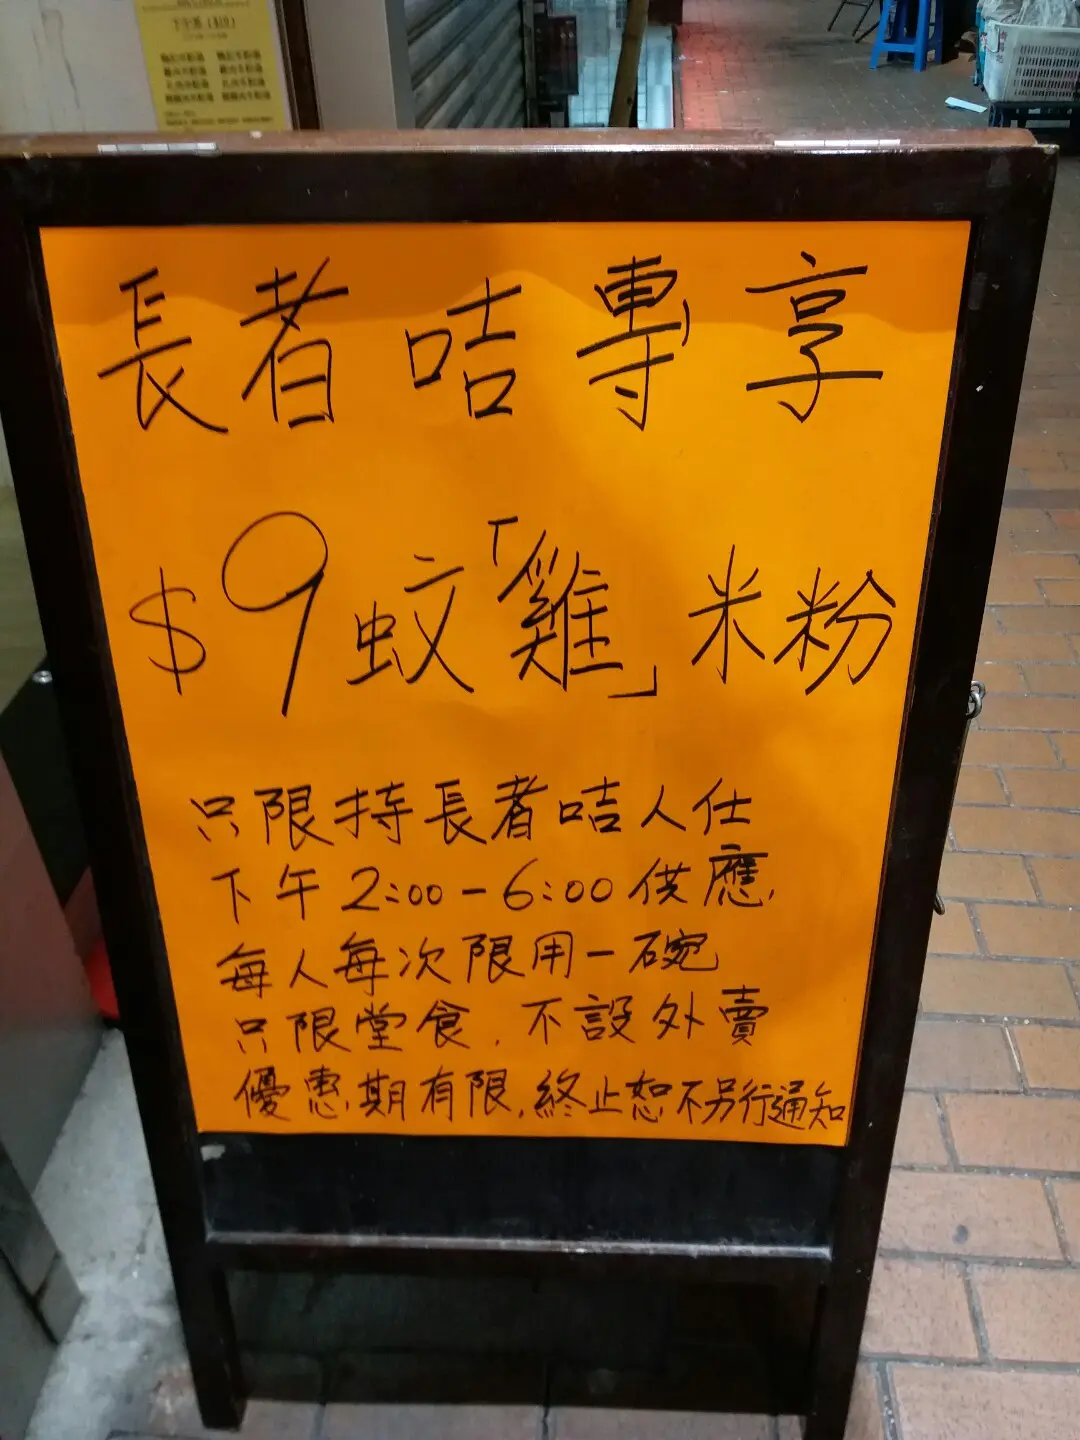 下午茶
長者咭專享
$9蚊「雞」米粉
只限持長者咭人仕
下午2:00-6:00供應,
每人每次限用一碗
只限堂食,不設外賣
優惠期有限,終止恕不另行通知